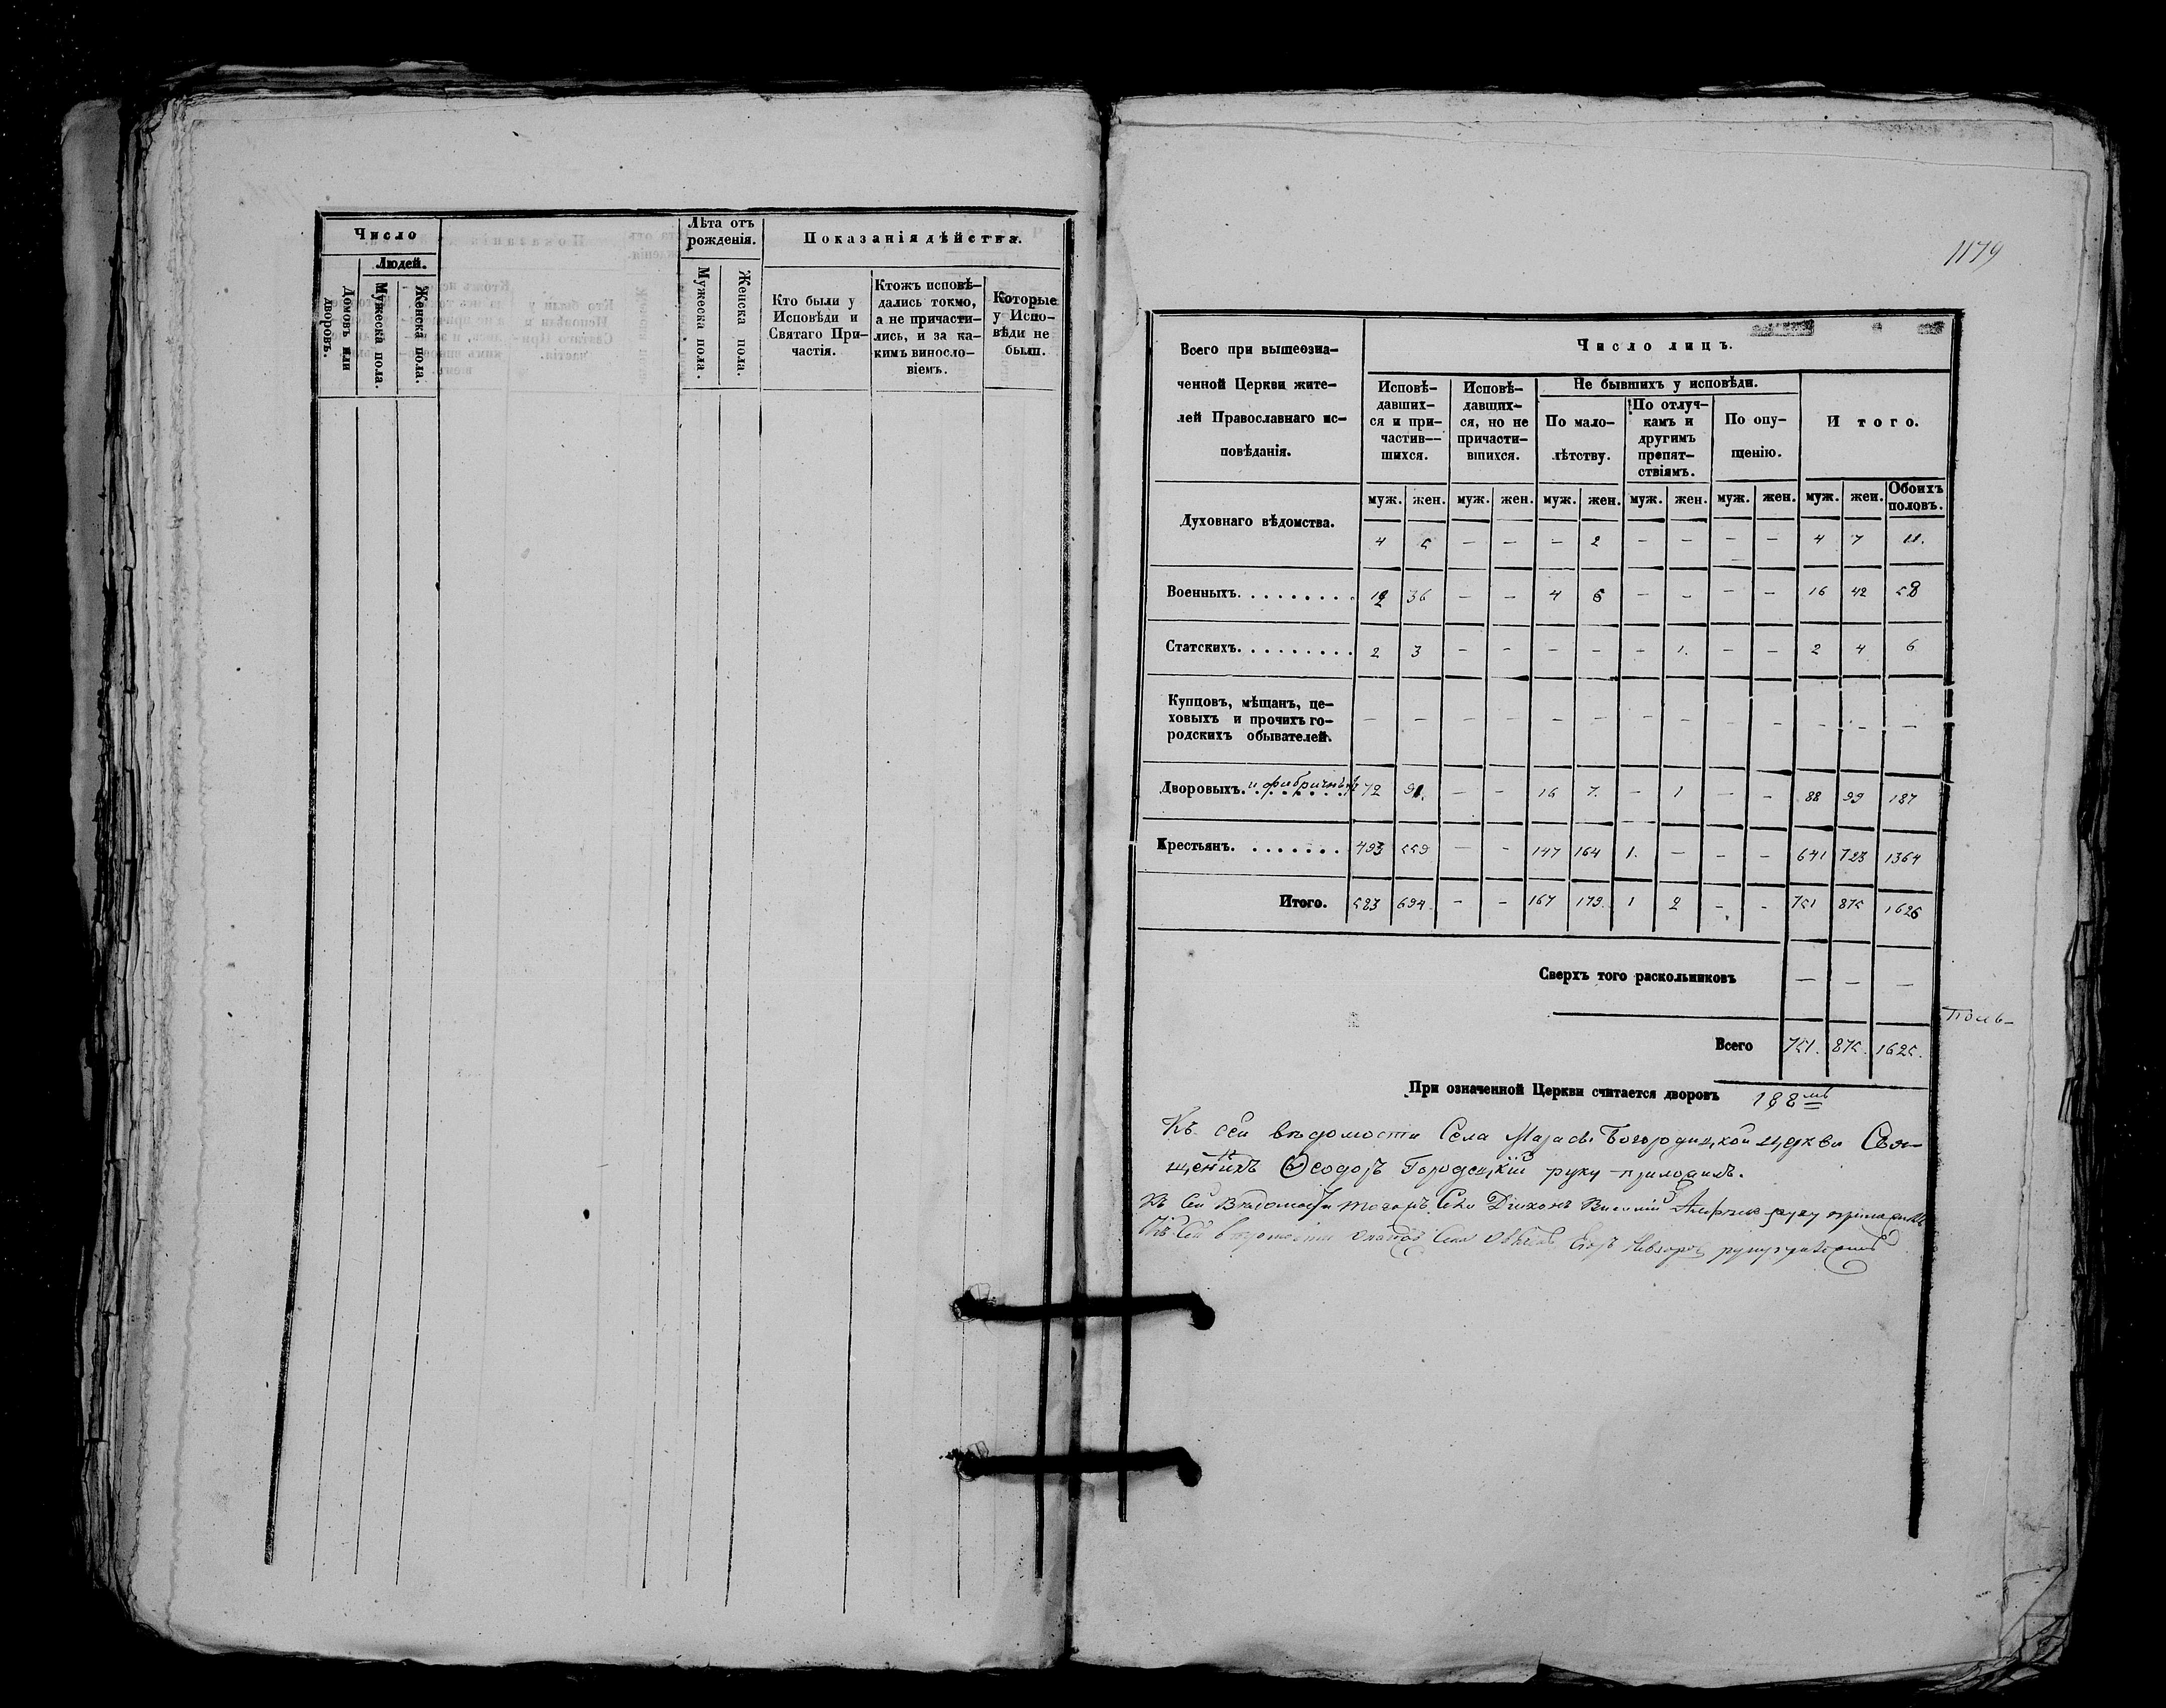 Число
Людей.
Домовъ или дворовъ.
Мужеска пола.
Женска пола.
Лѣта отъ рожденія.
Мужеска пола.
Женска пола.
Показанія дѣйства.
Кто были у
Исповѣди и
Святаго При-
частія.
Ктожъ исповѣ-
дались токмо,
а не причасти-
лись, и за ка-
кимъ винosло-
віемъ.
Которые
у Испо-
вѣди не
были.
1179
Всего при вышеозна-
ченной Церкви жите-
лей Православнаго ис-
повѣданія.
Число лицъ.
Исповѣ-
давших-
ся и при-
частив-
шихся.
Исповѣ-
давших-
ся, но не
причасти-
вшихся.
Не бывшихъ у исповѣди.
По мало-
лѣтству.
По отлуч-
камъ и
другимъ
препят-
ствіямъ.
По опу-
щенію.
Итого.
муж. жен. муж. жен. муж. жен. муж. жен. муж. жен. муж. жен. Обоихъ половъ.
Духовнаго вѣдомства.
4 5 — — — 2 — — — — 4 7 11.
Военныхъ. 12 36 — — 4 6 — — — — 16 42 58
Статскихъ. 2 3 — — — — — 1. — — 2 4 6
Купцовъ, мѣщанъ, це-
ховыхъ и прочихъ го-
родскихъ обывателей.
— — — — — — — — — — — — —
Дворовыхъ. и фабричныхъ 72 91. — — 16 7. — 1 — — 88 99 187
Крестьянъ. 493 559 — — 147 164 1. — — — 641 723 1364
Итого. 583 694. — — 167 179. 1 2 — — 751 875 1626
Сверхъ того раскольниковъ — — —
Всего 751. 875. 1625.
При означенной Церкви считается дворовъ 188
Къ сей вѣдомости Села Богородицкой церкви Свя-
щенникъ Ѳеодоръ Городецкій руку приложилъ.
Къ сей Вѣдомости тогожъ Села Діаконъ Василій руку приложилъ
Къ сей вѣдомости Села руку приложилъ